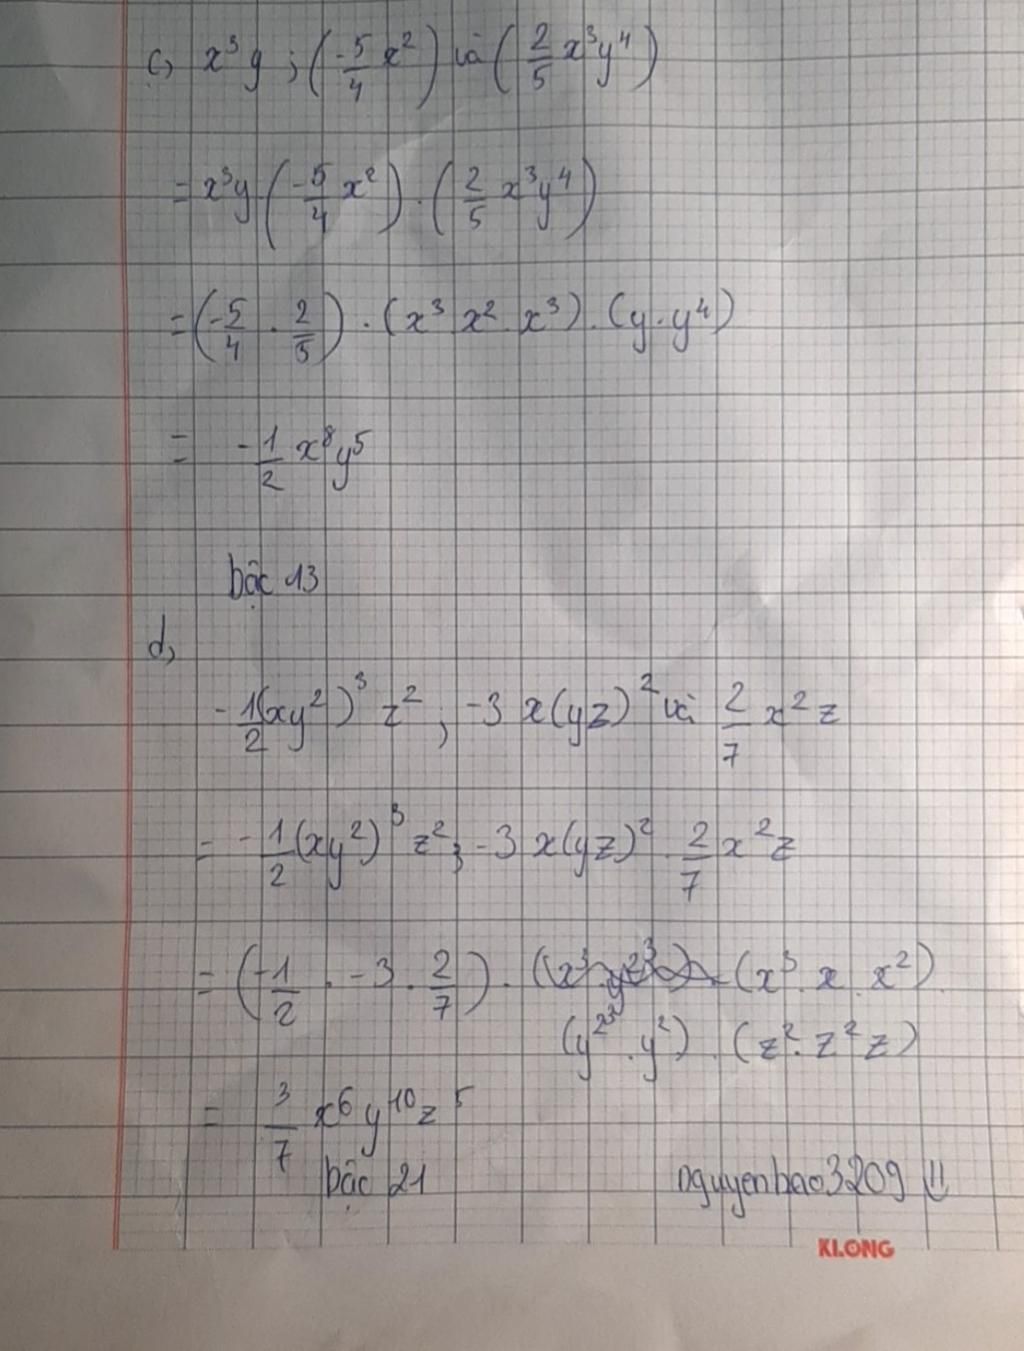 c, x³y ; (-5/4 x²) và (2/5 x³y⁴)
= x³y (-5/4 x²) . (2/5 x³y⁴)
= (-5/4 . 2/5) . (x³ x² x³) . (y . y⁴)
= -1/2 x⁸y⁵
bậc 13
d,
-1/2(xy²)³ z² ; -3 x(yz)² và 2/7 x²z
= -1/2(xy²)³ z² ; -3 x(yz)² . 2/7 x²z
= (-1/2 . -3 . 2/7) . (x³ . x . x²) .
. y²) . (z² . z² z)
= 3/7 x⁶y¹⁰z⁵
bậc 21
nguyenbao3209 !!
KLONG